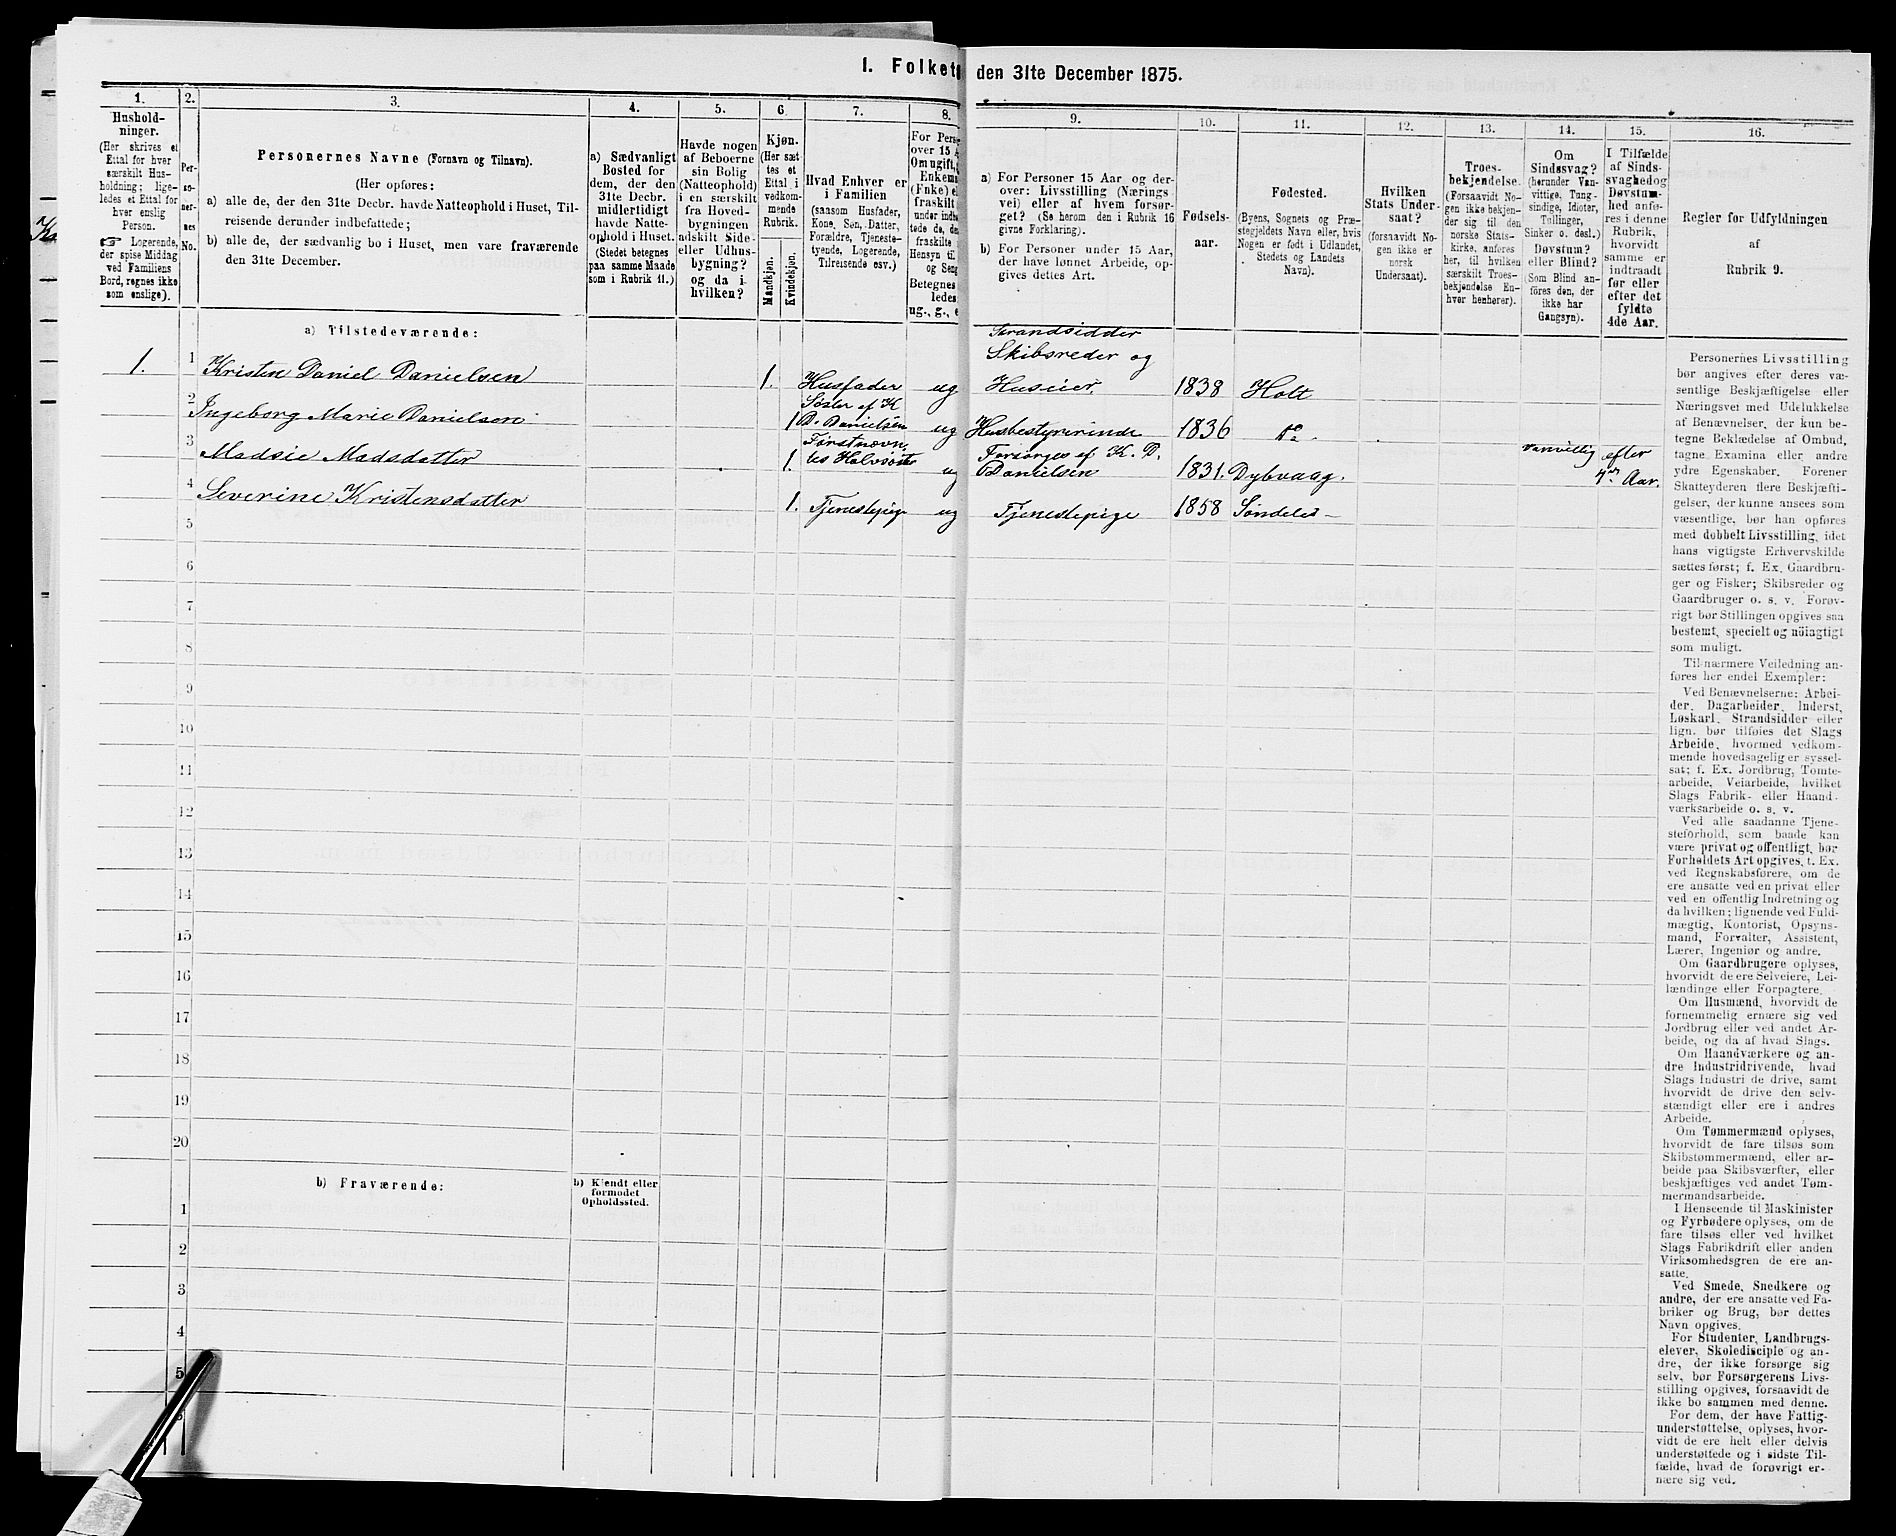 1. Folket
den 31te December 1875.
1.
Hushold-
ninger.
(Her skrives et
Ettal for hver
særskilt Hus-
holdning; lige-
ledes et Ettal for
hver enslig
Person.
☞ Logerende,
der spise Middag
ved Familiens
Bord, regnes ikke
som enslige).
2.
Per-
so-
ner-
nes
No.
3.
Personernes Navne (Fornavn og Tilnavn).
(Her opføres:
a) alle de, der den 31te Decbr. havde Natteophold i Huset, Til-
reisende derunder indbefattede;
b) alle de, der sædvanlig bo i Huset, men vare fraværende
den 31te December.
4.
a) Sædvanligt
Bosted for
dem, der den
31te Decbr.
midlertidigt
havde Natte-
ophold i Huset.
(Stedet betegnes
paa samme Maade
som i Rubrik 11.)
5.
Havde nogen
af Beboerne
sin Bolig
(Natteophold)
i en særskilt
fra Hoved-
bygningen
adskilt Side-
eller Udhus-
bygning?
og da i
hvilken?
6
Kjøn.
(Her sæt-
tes et
Ettal i
vedkom-
mende
Rubrik.
Mandkjøn.
Kvindekjøn.
7.
Hvad Enhver er
i Familien
(saasom Husfader,
Kone, Søn, Datter,
Forældre, Tjeneste-
tyende, Logerende,
Tilreisende osv.)
8.
For Perso
over 15 A
Om ugift,
Enkema
(Enke) e
fraskilt
under indb
tede de, de
fraskilte
Hensyn til
og Seng
Betegnes
ledes
ug., g., e
9.
a) For Personer 15 Aar og der-
over: Livsstilling (Nærings-
vei) eller af hvem forsør-
get? (Se herom den i Rubrik 16
givne Forklaring).
b) For Personer under 15 Aar,
der have lønnet Arbeide, op-
gives dettes Art.
10.
Fødsels-
aar.
11.
Fødested.
(Byens, Sognets og Præ-
stegjeldets Navn eller, hvis
Nogen er født i Udlandet,
Stedets og Landets
Navn).
12.
Hvilken
Stats Under-
saat?
(forsaavidt No-
gen ikke er
norsk
Undersaat).
13.
Troes-
bekjendelse.
(Forsaavidt No-
gen ikke bekjen-
der sig til den
norske Stats-
kirke, anføres
her, til hvilken
særskilt Troes-
bekjendelse En-
hver henhører).
14.
Om
Sindssvag?
(herunder Van-
vittige, Tung-
sindige, Idioter,
Tullinger,
Sinker o. desl.)
Døvstum?
eller Blind?
(Som Blind an-
føres den, der
ikke har
Gangsyn).
15.
I Tilfælde
af Sinds-
svaghed og
Døvstum-
hed anfø-
res i denne
Rubrik,
hvorvidt
samme er
indtraadt
før eller
efter det
fyldte
4de Aar.
16.
Regler for Udfyldningen
af
Rubrik 9.
a) Tilstedeværende:
1. 1 Kristen Daniel Danielsen 1. Husfader ug Strandsidder
Skibsreder og
Huseier, 1838 Holt
2 Ingeborg Marie Danielsen 1 Søster af K
D. Danielsen ug Husbestyrerinde 1836 do.
3 Madsie Madsdatter 1. Førstnævn-
tes Halvsøster ug Forsørges af K. D.
Danielsen 1831. Dybvaag. Vanvittig efter
4de Aar.
4 Severine Kristensdatter 1. Tjenestepige ug Tjenestepige 1858 Søndeled
5
6
7
8
9
10
11
12
13
14
15
16
17
18
19
20
b) Fraværende:
b) Kjendt eller
formodet
Opholdssted.
1
2
3
4
5
Personernes Livsstilling
bør angives efter deres væ-
sentlige Beskjæftigelse eller
Næringsvei med Udelukkelse
af Benævnelser, der kun be-
tegne Beklædelse af Ombud,
tagne Examina eller andre
ydre Egenskaber. Forener
Skatteyderen flere Beskjæfti-
gelser, der kunne ansees som
væsentlige, bør han opføres
med dobbelt Livsstilling, idet
hans vigtigste Erhvervskilde
sættes først; f. Ex. Gaardbru-
ger og Fisker; Skibsreder og
Gaardbruger o. s. v. Forøv-
rigt bør Stillingen opgives saa
bestemt, specielt og nöiagtigt
som muligt.
Til nærmere Veiledning an-
føres her endel Exempler:
Ved Benævnelserne: Arbei-
der, Dagarbeider, Inderst,
Løskarl, Strandsidder eller
lign. bør tilføies det Slags
Arbeide, hvormed vedkom-
mende hovedsagelig er syssel-
sat; f. Ex. Jordbrug, Tomte-
arbeide, Veiarbeide, hvilket
Slags Fabrik- eller Haand-
værksarbeide o. s. v.
Ved alle saadanne Tjene-
steforhold, som baade kan
være privat og offentligt, bør
Forholdets Art opgives, t. Ex.
ved Regnskabsførere, om de
ere ansatte ved en privat eller
ved en offentlig Indretning og
da hvilken; lignende ved Fuld-
mægtig, Kontorist, Opsyns-
mand, Forvalter, Assistent,
Lærer, Ingeniør og andre.
Om Gaardbrugere oplyses,
hvorvidt de ere Selveiere, Lei-
lændinge eller Forpagtere.
Om Husmænd, hvorvidt de
fornemmelig ernære sig ved
Jordbrug eller ved andet Ar-
beide, og da af hvad Slags.
Om Haandværkere og an-
dre Industridrivende, hvad
Slags Industri de drive, samt
hvorvidt de drive den selv-
stændigt eller ere i andres
Arbeide.
Om Tømmermænd oplyses,
hvorvidt de fare tilsøs som
Skibstømmermænd, eller ar-
beide paa Skibsværfter, eller
beskjæftiges ved andet Tøm-
mermandsarbeide.
I Henseende til Maskinister
og Fyrbødere oplyses, om de
fare tilsøs eller ved hvilket
Slags Fabrikdrift eller anden
Virksomhedsgren de ere an-
satte.
Ved Smede, Snedkere og
andre, der ere ansatte ved Fa-
briker og Brug, bør dettes
Navn opgives.
For Studenter, Landbrugs-
elever, Skoledisciple og an-
dre, der ikke forsørge sig
selv, bør Forsørgerens Livs-
stilling opgives, forsaavidt de
ikke bo sammen med denne.
For dem, der have Fattig-
understøttelse, oplyses, hvor-
vidt de ere helt eller delvis
understøttede og i sidste Til-
fælde, hvad de forøvrigt er-
nære sig ved.